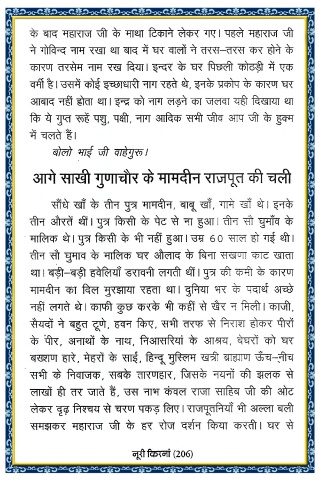 के बाद महाराज जी के माथा टिकाने लेकर गए। पहले महाराज जी
ने गोविन्द नाम रखा था बाद में घर वालों ने तरस–तरस कर होने के
कारण तरसेम नाम रख दिया। इन्दर के घर पिछली कोठड़ी में एक
वर्मी है। उसमें कोई इच्छाधारी नाग रहते थे, इनके प्रकोप के कारण घर
आबाद नहीं होता था। इन्द्र को नाग लड़ने का जलवा यही दिखाया था
कि ये गुप्त रूहें पशु, पक्षी, नाग आदिक सभी जीव आप जी के हुक्म
में चलते हैं।
बोलो भाई जी वाहेगुरू।
आगे साखी गुणाचौर के मामदीन राजपूत की चली
सौंधे खाँ के तीन पुत्र मामदीन, बाबू खाँ, गामे खाँ थे। इनके
तीन औरतें थीं। पुत्र किसी के पेट से ना हुआ। तीन सौ घुमाँव के
मालिक थे। पुत्र किसी के भी नहीं हुआ। उम्र 60 साल हो गई थी।
तीन सौ घुमाव के मालिक घर औलाद के बिना सखणा काट खाता
था। बड़ी–बड़ी हवेलियाँ डरावनी लगती थीं। पुत्र की कमी के कारण
मामदीन का दिल मुरझाया रहता था। दुनिया भर के पदार्थ अच्छे
नहीं लगते थे। काफी कुछ करके भी कहीं से खैर न मिली। काजी,
सैयदों ने बहुत टूणे, हवन किए, सभी तरफ से निराश होकर पीरों
के पीर, अनाथों के नाथ, निआसरियां के आश्रय, बेघरों को घर
बख्शण हारे, मेहरों के साईं, हिन्दू मुस्लिम खत्री ब्राह्मण ऊँच–नीच
सभी के निवाजक, सबके तारणहार, जिसके नयनों की झलक से
लाखों ही तर जाते हैं, उस नाभ कंवल राजा साहिब जी की ओट
लेकर दृढ़ निश्चय से चरण पकड़ लिए। राजपूतनियाँ भी अल्ला बली
समझकर महाराज जी के हर रोज दर्शन किया करती। घर से
नूरी किरनां (206)